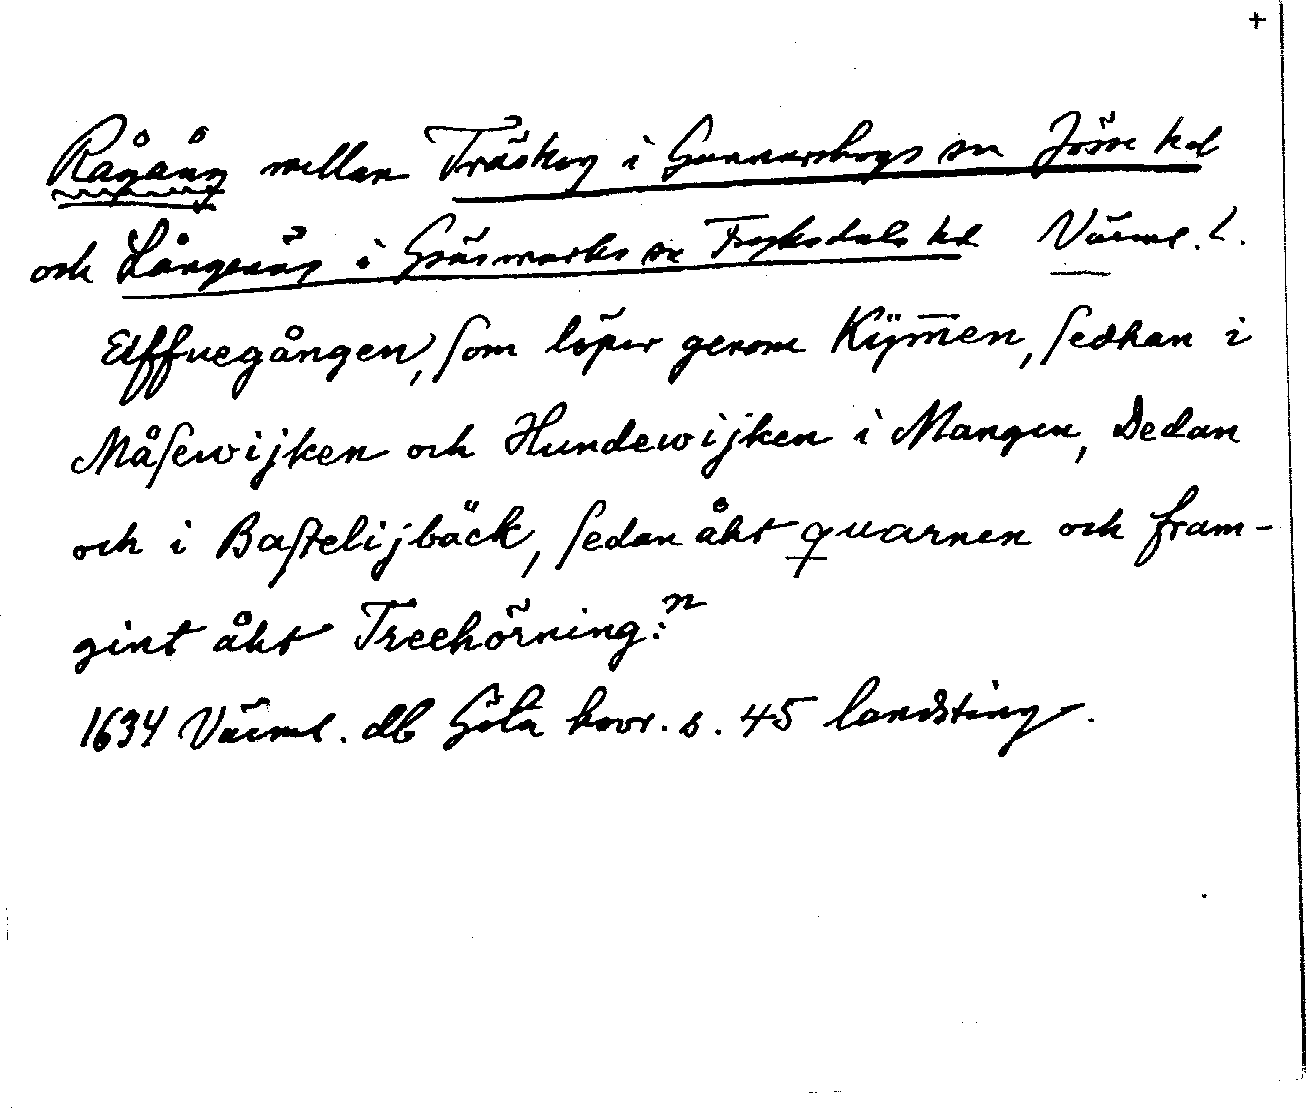 +
Rågång mellan Träskog i Gunnarskogs sn Jösse hd
och Långenäs i Gräsmarks sn Fryksdals hd Värml. l.
Elffuegången, som löper genom Kÿm̅en, sedhan i
Måsewijken och Hundewijken i Mangen, Dedan
och i Bastelijbäck, sedan åht quarnen och fram-
gint åht Treehörning:n
1634 Värml. db Göta hovr. s. 45 landsting.